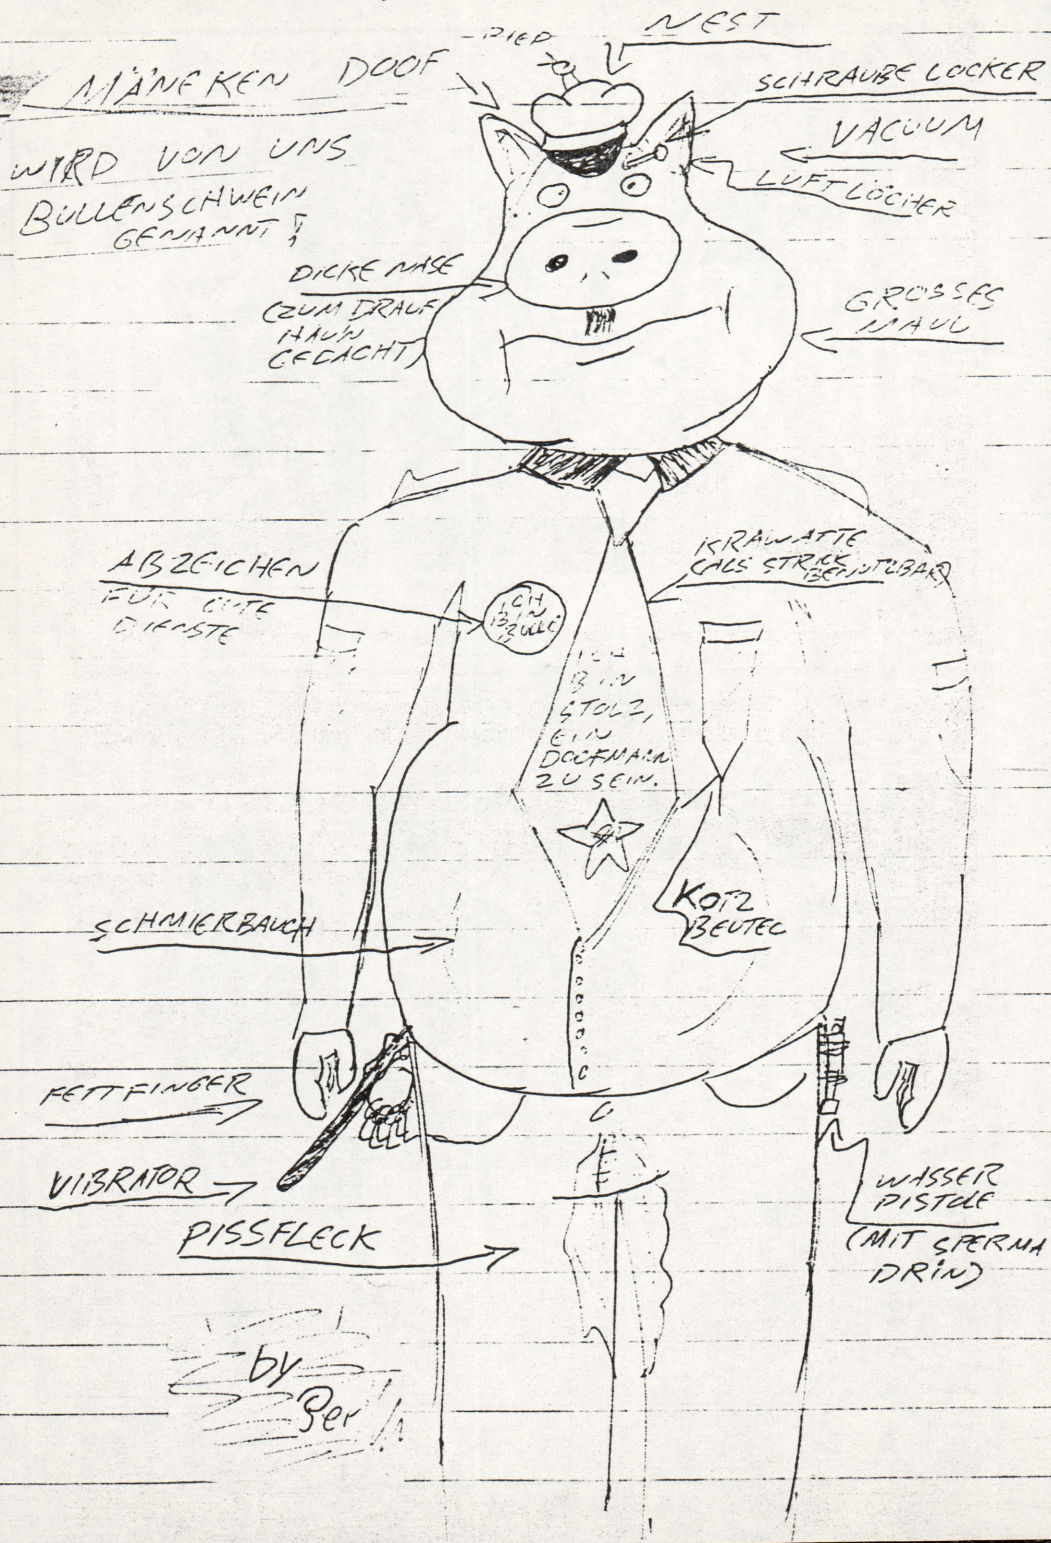 PIEP
NEST
MÄNEKEN DOOF
SCHRAUBE LOCKER
VACUUM
WIRD VON UNS
BULLENSCHWEIN
GENANNT!
LUFTLÖCHER
DICKE NASE
(ZUM DRAUF
HAU'N
GEDACHT)
GROSSES
MAUL
ABZEICHEN
FÜR GUTE
DIENSTE
ICH
BIN
KRAWATTE
(ALS STRICK
BENUTZBAR)
ICH
BIN
STOLZ,
EIN
DOOFMANN
ZU SEIN.
KOTZ
BEUTEL
SCHMIERBAUCH
FETTFINGER
VIBRATOR
PISSFLECK
WASSER
PISTOLE
(MIT SPERMA
DRIN)
by
Per